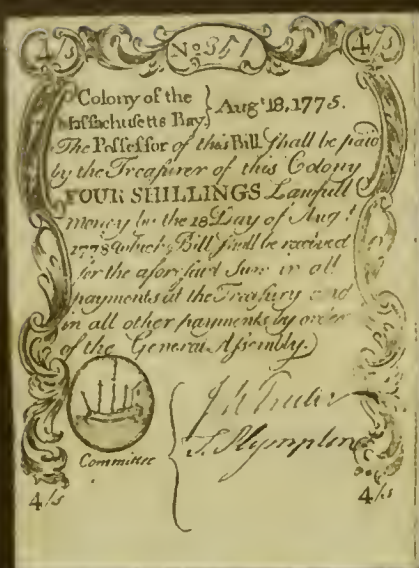 4/s No 851 4/s
Colony of the } Augt 18, 1775.
Massachusetts Bay
The Possessor of this Bill shall be paid
by the Treasurer of this Colony
FOUR SHILLINGS Lawfull
money by the 18 Day of Augt
1778 which Bill shall be received
for the aforesaid Sum in all
payments at the Treasury and
in all other payments by order
of the General Assembly
Committee
4/s 4/s